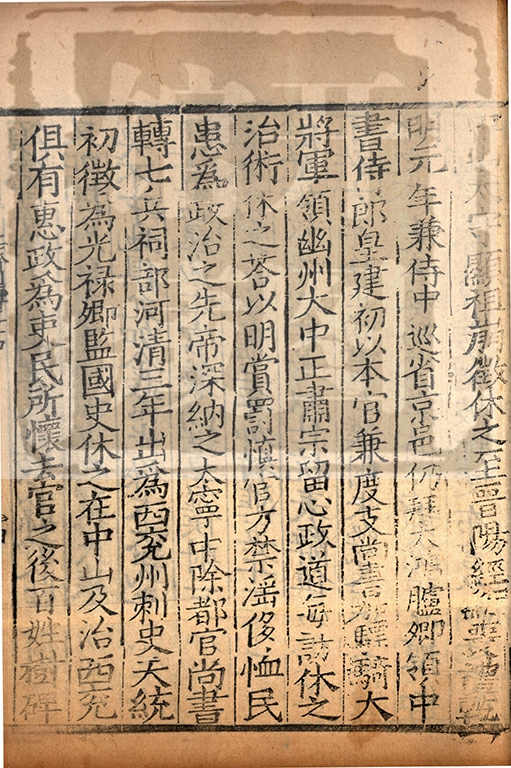 太守顯祖崩徵休之至晉陽經
明元年兼侍中巡省京邑仍拜大鴻臚卿領中
書侍郎皇建初以本官兼度支尚書加驃騎大
將軍領幽州大中正肅宗留心政道每訪休之
治術休之荅以明賞罰慎官方禁淫侈恤民
患為政治之先帝深納之太寧中除都官尚書
轉七兵祠部河清三年出為西兖州刺史天統
初徵為光禄卿監國史休之在中山及治西兖
俱有惠政為吏民所懷去官之後百姓樹碑